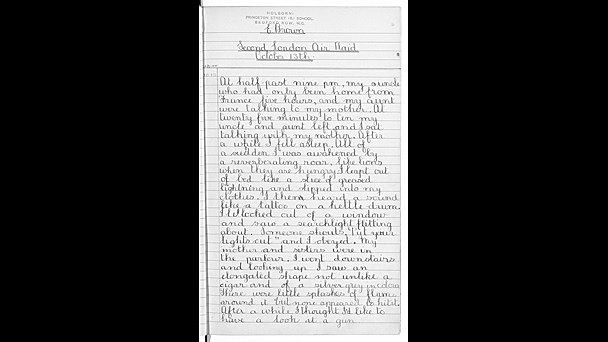 HOLBORN:
PRINCETON STREET (B) SCHOOL,
BEDFORD ROW, W.C.
E Browon
Second London Air Raid
October 13th.
At half-past nine pm, my uncle
who had only been home from
France five hours, and my aunt
were talking to my mother. At
twenty five minutes to ten my
uncle and aunt left and I sat
talking with my mother. After
a while I fell asleep. All of
a sudden I was awakened by
a reverberating roar, like lions
when they are hungry. I leapt out
of bed like a slice of greased
lightning and slipped into my
clothes. I then heard a sound
like a tattoo on a kettle drum.
I looked out of a window
and saw a searchlight flitting
about. Someone shouts, "put your
lights out" and I obeyed. My
mother and sisters were in
the parlour. I went downstairs
and looking up I saw an
elongated shape not unlike a
cigar and of a silver grey in colour
There were little splashes of flame
around it but none appeared to hit it.
After a while I thought I'd like to
have a look at a gun